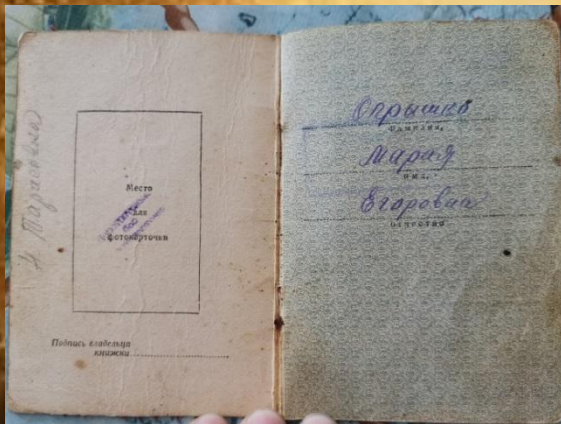 Н. Тарасовка
Место
для
фотокарточки
Подпись владельца
книжки
Огрышко
Фамилия,
Мария
имя,
Егоровна
отчество